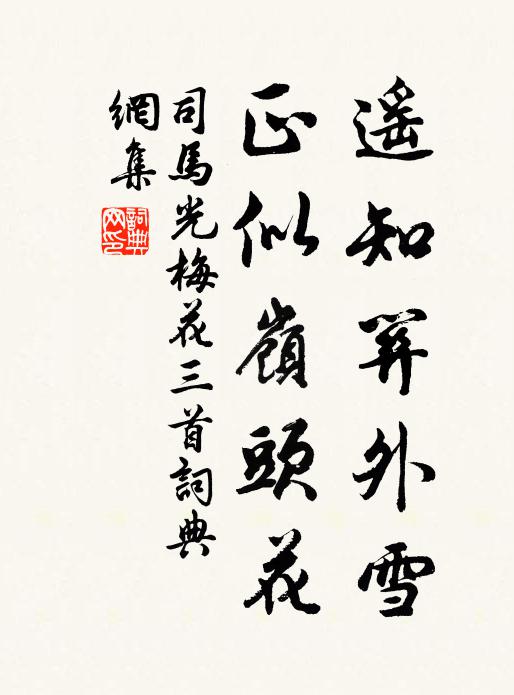 遥知關外雪
正似嶺頭花
司馬光梅花三首詞典
網集
詞典
网印